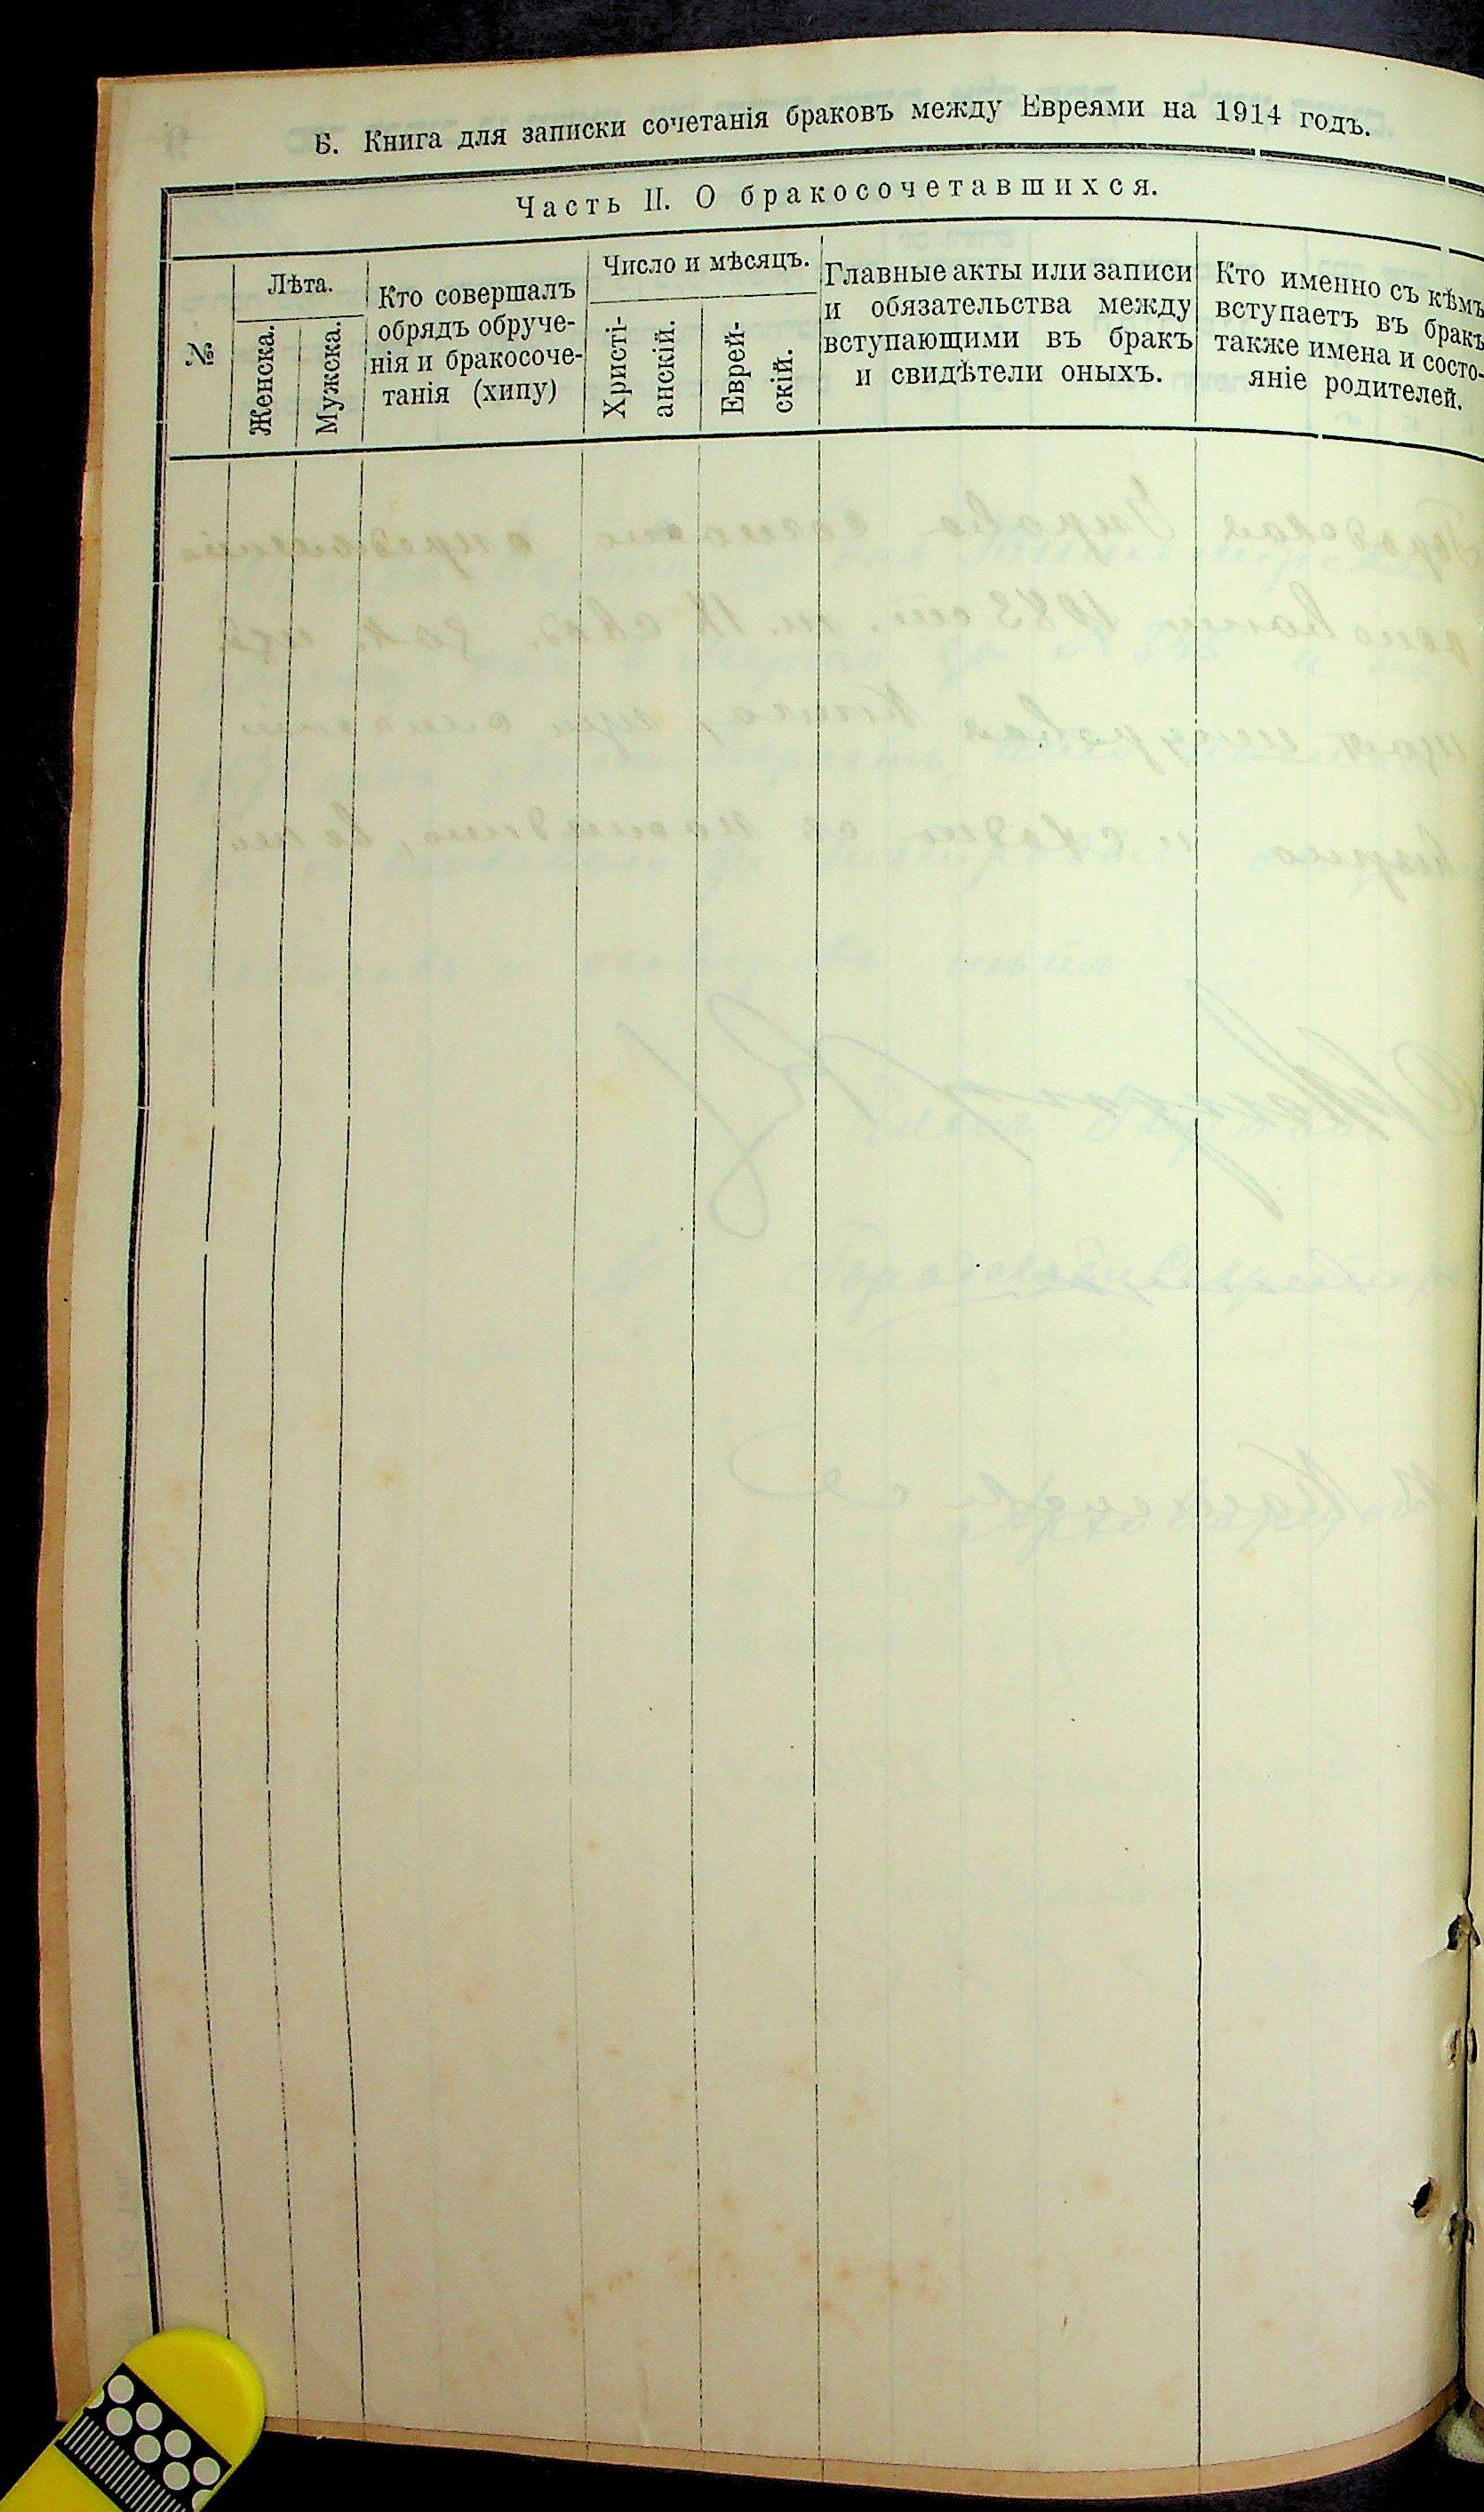 Б. Книга для записки сочетанія браковъ между Евреями на 1914 годъ.
Часть II. О бракосочетавшихся.
№
Лѣта.
Женска.
Мужска.
Кто совершалъ
обрядъ обруче-
нія и бракосоче-
танія (хипу)
Число и мѣсяцъ.
Христі-
анскій.
Еврей-
скій.
Главные акты или записи
и обязательства между
вступающими въ бракъ
и свидѣтели оныхъ.
Кто именно съ кѣмъ
вступаетъ въ бракъ
также имена и состо-
яніе родителей.